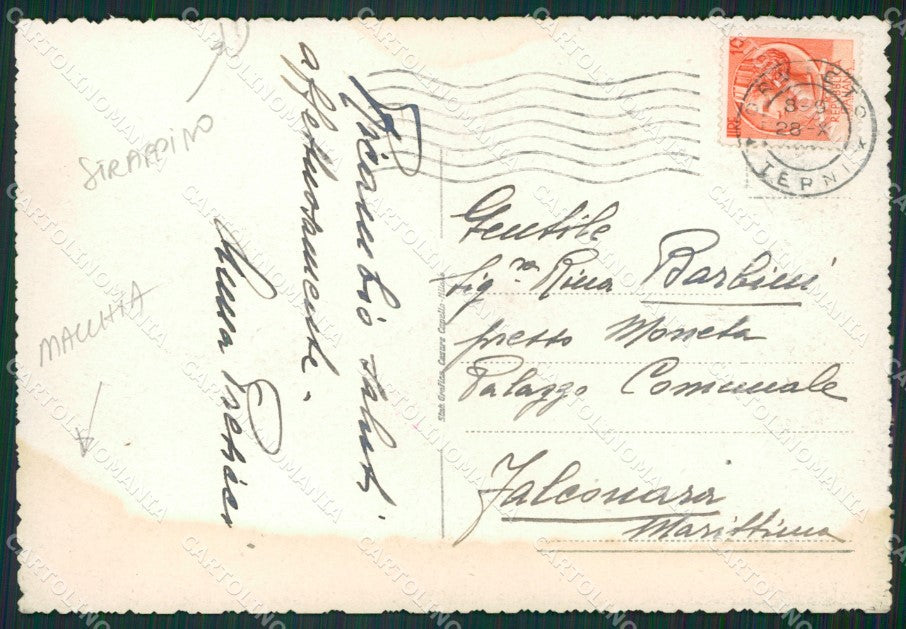 STRAPPINO
MACCHIA
Ricambio saluti
affettuosamente.
Anna
Stab. Grafico Cesare Capello - Milano
LIRE 10
TERNI
28-X
Gentile
Sigʳᵃ Rina Barbini
presso Moneta
Palazzo Comunale
Falconara
Marittima
CARTOLINOMANIA